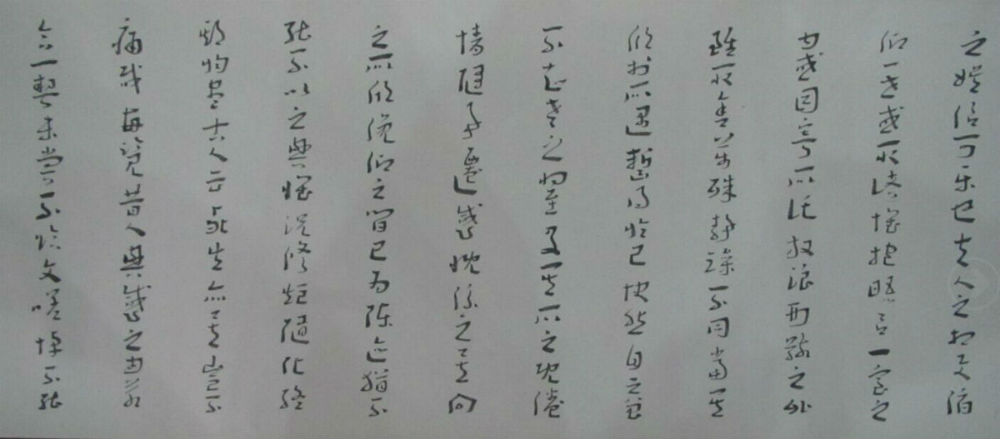 之娛信可樂也夫人之相與俯
仰一世或取諸懷抱晤言一室之
內或因寄所託放浪形骸之外
雖取舍萬殊靜躁不同當其
欣於所遇暫得於己快然自足
不知老之將至及其所之既倦
情隨事遷感慨係之矣向
之所欣俛仰之間已為陳迹猶不
能不以之興懷況修短隨化終
期於盡古人云死生亦大矣豈不
痛哉每覽昔人興感之由若
合一契未嘗不臨文嗟悼不能